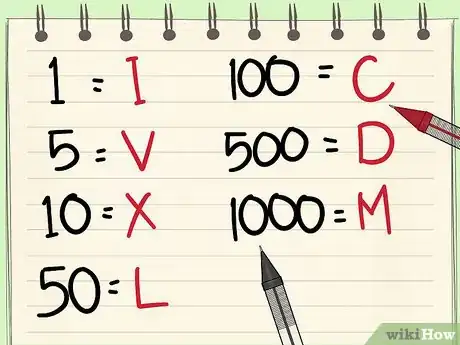 1 = I
5 = V
10 = X
50 = L
100 = C
500 = D
1000 = M
wikiHow